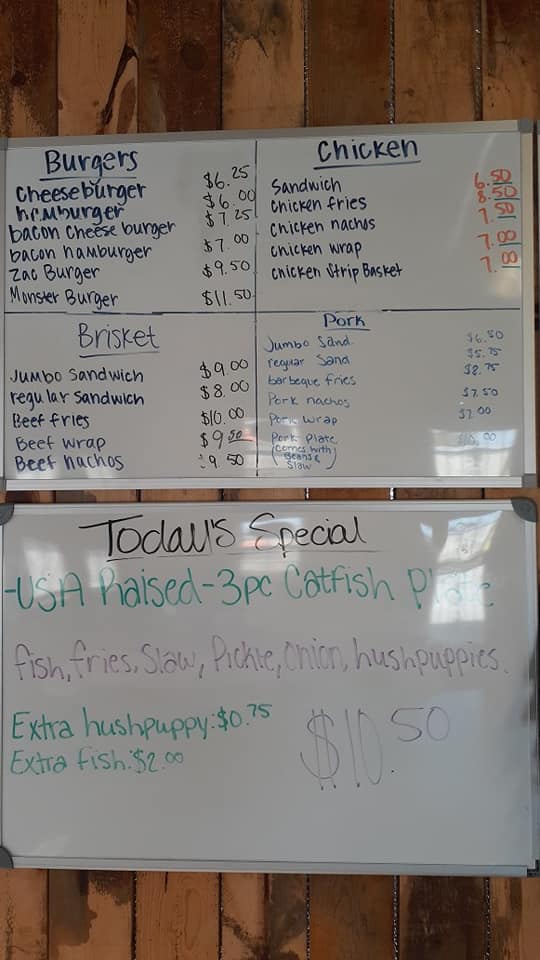 Burgers
Cheeseburger $6.25
hamburger $6.00
bacon cheese burger $7.25
bacon hamburger $7.00
Zac Burger $9.50
Monster Burger $11.50
Chicken
Sandwich 6.50
chicken fries 8.50
chicken nachos 7.50
chicken wrap 7.00
chicken Strip Basket 7.00
Brisket
Jumbo Sandwich $9.00
regular Sandwich $8.00
Beef fries $10.00
Beef wrap $9.50
Beef nachos 9.50
Pork
Jumbo Sand. $6.50
regular Sand $5.75
barbeque fries $8.75
Pork nachos $7.50
Pork wrap $7.00
Pork Plate $10.00
(comes with
Beans &
Slaw)
Today's Special
-USA Raised-3pc Catfish Plate
fish, fries, Slaw, Pickle, Onion, hushpuppies.
Extra hushpuppy: $0.75
Extra fish: $2.00
$10.50